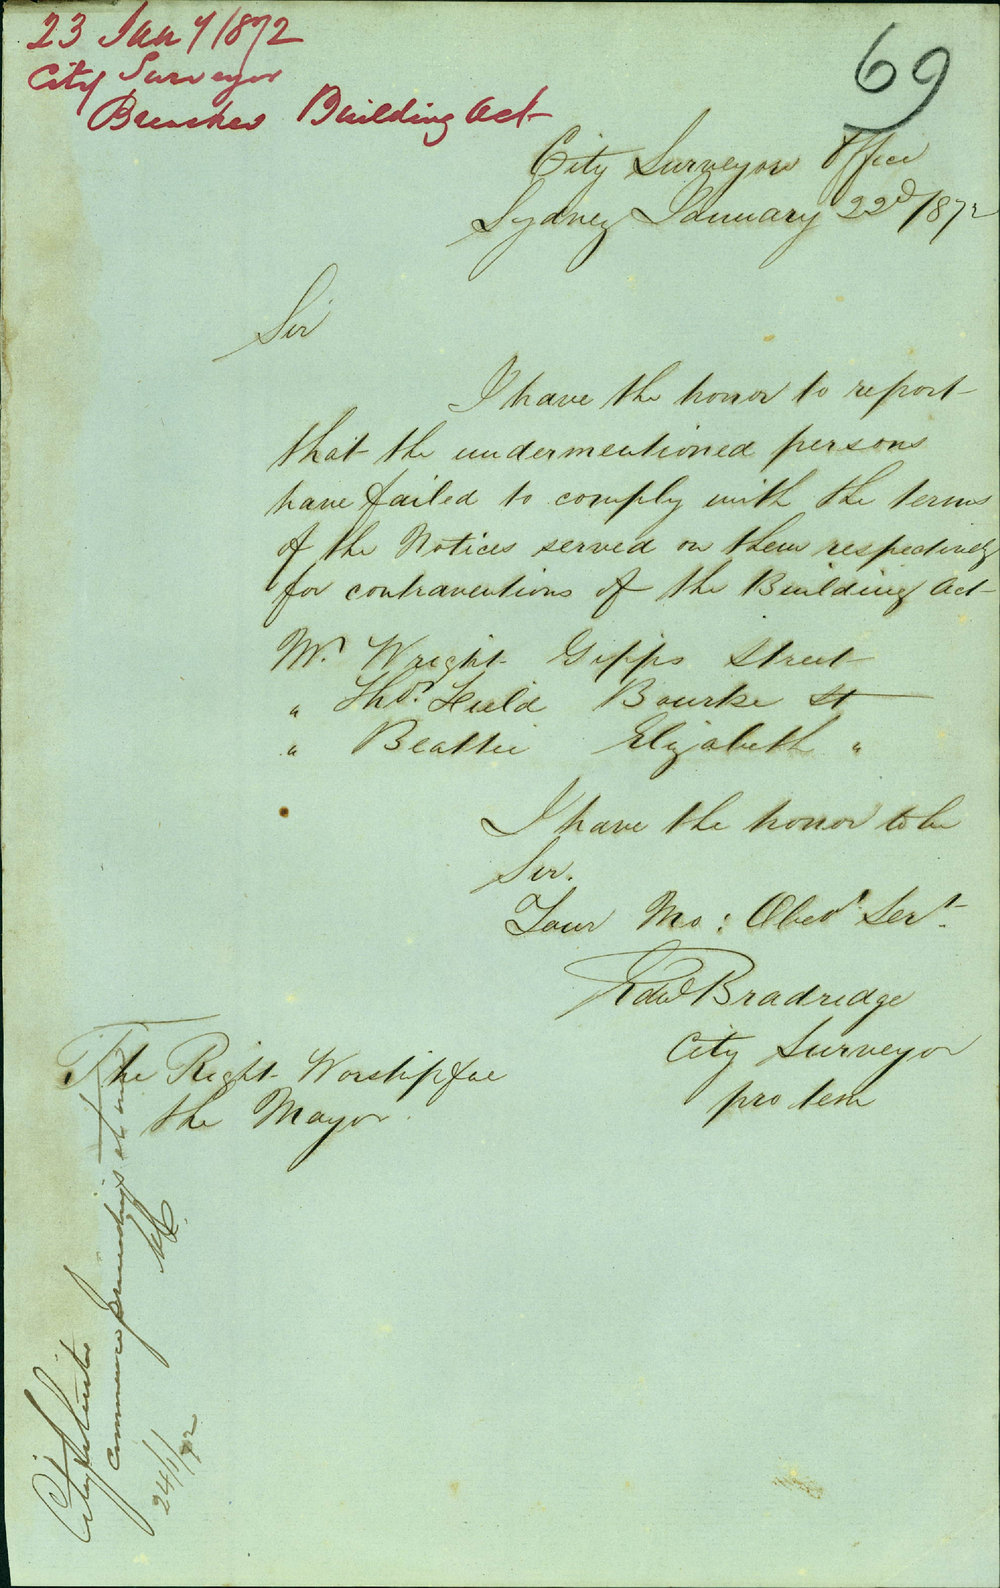 23 Jany 1872
City Surveyor
Breaches Building Act
69
City Surveyors Office
Sydney January 22d/1872
Sir
I have the honor to report
that the undermentioned persons
have failed to comply with the terms
of the Notices served on them respectively
for contraventions of the Building Act
Mr. Wright Gipps Street
" Thos. Field Bourke St
" Beattie Elizabeth "
I have the honor to be
Sir.
Your Mo: Obedt Sert.
Edwd Bradridge
City Surveyor
pro tem
The Right Worshipful
the Mayor.
City Solicitor
Commence proceedings at once
24/1/72